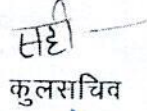 सही
कुलसचिव